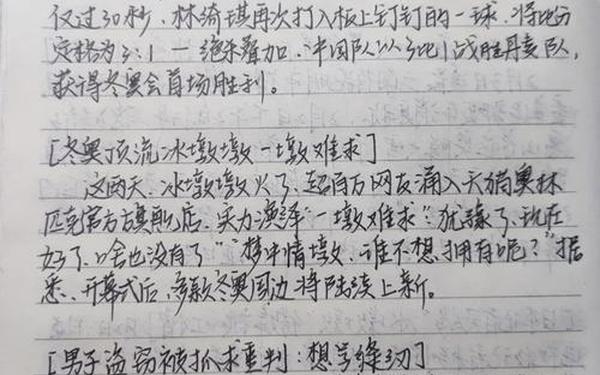 仅过30秒,林绮琪再次打入板上钉钉的一球,将比分
定格为3:1 一 绝杀叠加,中国队以3比1战胜丹麦队,
获得冬奥会首场胜利。
[冬奥顶流冰墩墩一墩难求]
这两天,冰墩墩火了,超百万网友涌入天猫奥林
匹克官方旗舰店,实力演绎“一墩难求”“犹豫了,现在
好了,啥也没有了”“梦中情墩,谁不想拥有呢?”据
悉,开幕式后,多款冬奥周边将陆续上新。
[男子盗窃被抓求重判:想学缝纫]